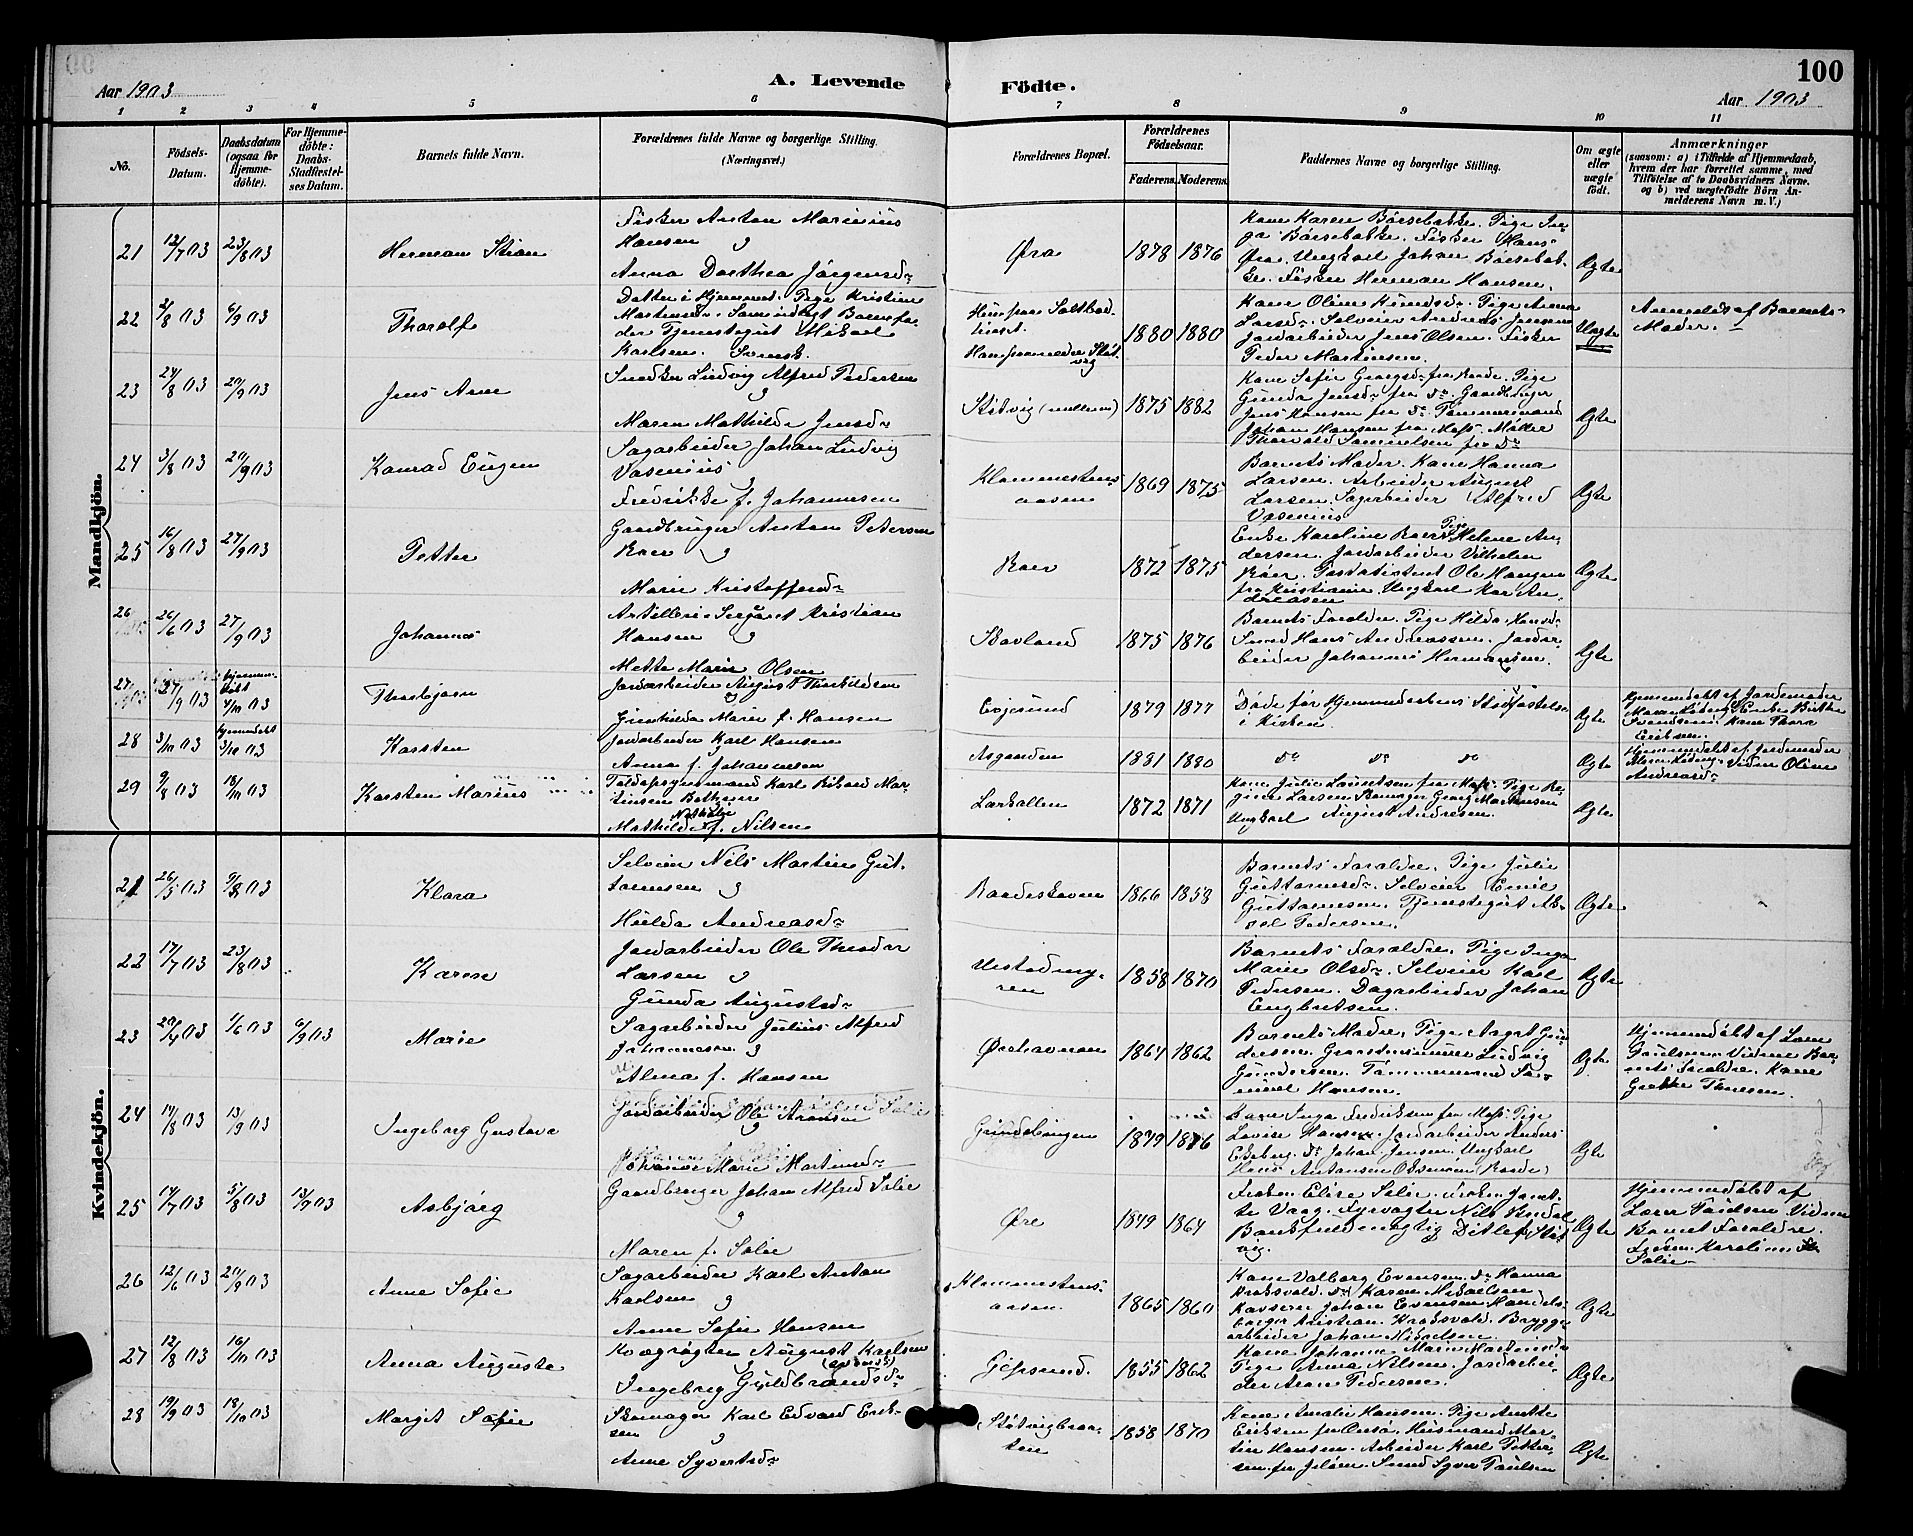 100
Aar 1903
A. Levende
Födte.
Aar 1903
1 2 3 4 5 6 7 8 9 10 11
No.
Födsels-
Datum.
Daabsdatum
(ogsaa for
Hjemme-
döbte).
For Hjemme-
döbte:
Daabs-
Stadfæstel-
ses Datum.
Barnets fulde Navn.
Forældrenes fulde Navne og borgerlige Stilling.
(Næringsvei.)
Forældrenes Bopæl.
Forældrenes
Födselsaar.
Faderens. Moderens.
Faddernes Navne og borgerlige Stilling.
Om ægte
eller
uægte
födt.
Anmærkninger
(saasom: a) i Tilfælde af Hjemmedaab,
hvem der har forrettet samme, med
Tilföielse af to Daabsvidners Navne.
og b) ved uægtefödte Börn An-
melderens Navn m. V.)
Mandkjön.
21 12/7 03 23/8 03 Herman Stian
Fisker Anton Marinius
Hansen og
Anna Dorthea Jörgensdr
Øra 1878 1876
Kone Karen Börsebakke. Pige In-
ga Börsebakke. Fisker Hans
Øra. Ungkarl Johan Börsebak-
ke. Fisker Herman Hansen.
Ægte
22 2/8 03 6/9 03 Thoralf
Datter i Hjemmet. Pige Kristine
Martensen
der Tjenestegut Mikael
Karlsen. Svensk.
1880 1880
Kone Oline Knudsdr. Pige Anna
Larsdr. Selveier Andreas Jensen
Jordarbeider Jens Olsen. Fisker
Peder Martinsen.
Uægte
Anmeldt af Barnets
Moder.
23 24/8 03 20/9 03 Jens Arne
Snedker Ludvig Alfred Pedersen
og
Maren Mathilde Jensdr
Støtvig (mellem) 1875 1882
Kone Sofie Georgsdr fra Raade. Pige
Gunda Jensdr fra do. Gaardbruger
Jens Hansen fra do. Tømmermand
Johan Hansen fra Moss. Møller
Thorvald Samuelsen fra do
Ægte
24 3/8 03 20/9 03 Konrad Eugen
Sagarbeider Johan Ludvig
Vasenius og
Fredrikke f. Johannesen
Klommestens-
aasen 1869 1875
Barnets Moder. Kone Hanna
Larsen. Arbeider August
Larsen. Sagarbeider Alfred
Vasenius
Ægte
25 16/8 03 27/9 03 Petter
Gaardbruger Anton Petersen
Raer og
Marie Kristoffersdr
Raer 1872 1875
Enke Karoline Raer. Pige Helene An-
dersen. Jordarbeider Vilhelm
Röer. Postbetjent Ole Hansen
fra Kristiania. Ungkarl Kar An-
dreasen
Ægte
26 26/6 03 27/9 03 Johannes
Artilleri Sergeant Kristian
Hansen og
Mette Marie Olsen
Skovland 1875 1876
Barnets Forældre. Pige Hilda Hansdr
Smed Hans Andreassen. Jordar-
beider Johannes Hermansen.
Ægte
27 27/9 03 hjemme-
döbt
4/10 03 Thorbjørn
Jordarbeider August Thorkildsen
og
Gunhilda Marie f. Hansen
Evjesund 1879 1877
Døde før Hjemmedaabens Stadfæstelse
i Kirken.
Ægte
Hjemmedøbt af Jordemoder
Svendsen. Kone Thora
Eriksen.
28 3/10 03 hjemmedøbt
3/10 03 Karsten
Jordarbeider Karl Hansen
og
Anna f. Johannesen
Aagaarden 1881 1880
do do do
Ægte
Hjemmedøbt af Jordemoder
Vidner Oline
Andreasdr
29 9/8 03 18/10 03 Karsten Marius
Toldopsynsmand Karl Rikard Mar-
tinsen Bothner
Mathilde Nathalie f. Nilsen
Larkollen 1872 1871
Kone Julie Lauritsen fra Moss. Pige Re-
gine Larsen. Skomager Georg Martinsen
Ungkarl August Andresen.
Ægte
Kvindekjön.
21 26/5 03 9/8 03 Klara
Selveier Nils Martin Gut-
tormsen og
Hulda Andreasdr
Raadeskoven 1866 1858
Barnets Forældre. Pige Julie
Guttormsdr. Selveier Emil
Guttormsen. Tjenestegut Ak-
sel Pedersen.
Ægte
22 17/7 03 23/8 03 Karen
Jordarbeider Ole Theodor
Larsen og
Gunda Augustadr
1858 1870
Barnets Forældre. Pige Inga
Marie Olsdr. Selveier Karl
Pedersen. Dagarbeider Johan
Engbretsen.
Ægte
23 20/4 03 1/6 03 6/9 03 Marie
Sagarbeider Julius Alfred
Johannesen og
Alma f. Hansen
Ørehavnen 1864 1862
Barnets Moder, Pige Aagot Gun-
dersen. Grændseminør Ludvig
Gundersen. Tømmermand Sa-
muel Hansen.
Ægte.
Hjemmedøbt af Lars
Poulsen. Vidner Bar-
nets Forældre. Kone
Grethe Thuesen.
24 14/8 03 13/9 03 Ingeborg Gustava
Jordarbeider Ole Aronsen
og
Johanne Marie Martinsdr
1879 1876
Kone Inga Fredriksen fra Moss. Pige
Lovise Hansen. Jordarbeider Anders
Ekeberg. do Johan Jensen. Ungkarl
Hans Antonsen Oksmoen (Raade)
Ægte
25 14/7 03 5/8 03 13/9 03 Asbjørg
Gaardbruger Johan Alfred Solie
og
Maren f. Solie
Øre 1849 1864
Frøken Elise Solie. Frøken Janet-
te Vaag. Fyrvogter Nils
Bankfuldmægtig Ditlef Støt-
vig.
Ægte
Hjemmedøbt af
Lærer Poulsen. Vidner
Barnets Forældre.
Frøken Karoline
Solie
26 12/6 03 20/9 03 Anne Sofie
Sagarbeider Karl Anton
Karlsen og
Anne Sofie Hansen
Klommestens-
aasen. 1865 1860
Kone Valborg Evensen. do Hanna
Kroksvold. do Karen Mikaelsen
Kasserer Johan Evensen. Handels-
borger Kristian Kroksvold. Brygge-
arbeider Johan Mikaelsen.
Ægte
27 12/8 03 16/10 03 Anna Auguste
Kvægrøgter August Karlsen
(svensk)
Ingeborg Guldbrandsdr
Gipsund. 1855 1862
Kone Johanne Marie Martensdr
Pige Anna Nilsen. Jordarbei-
der Aron Pedersen.
Ægte
28 19/9 03 18/10 03 Margit Sofie
Skomager Karl Edvard Erik-
sen og
Anne Syvertsdr
Støtvigbraa-
ten 1858 1870
Kone Amalie Hansen. Pige Anette
Eriksen fra Onsø. Husmand Mar-
tin Hansen. Arbeider Karl Petter-
sen fra Jeløen. Smed Syver Paulsen
Ægte